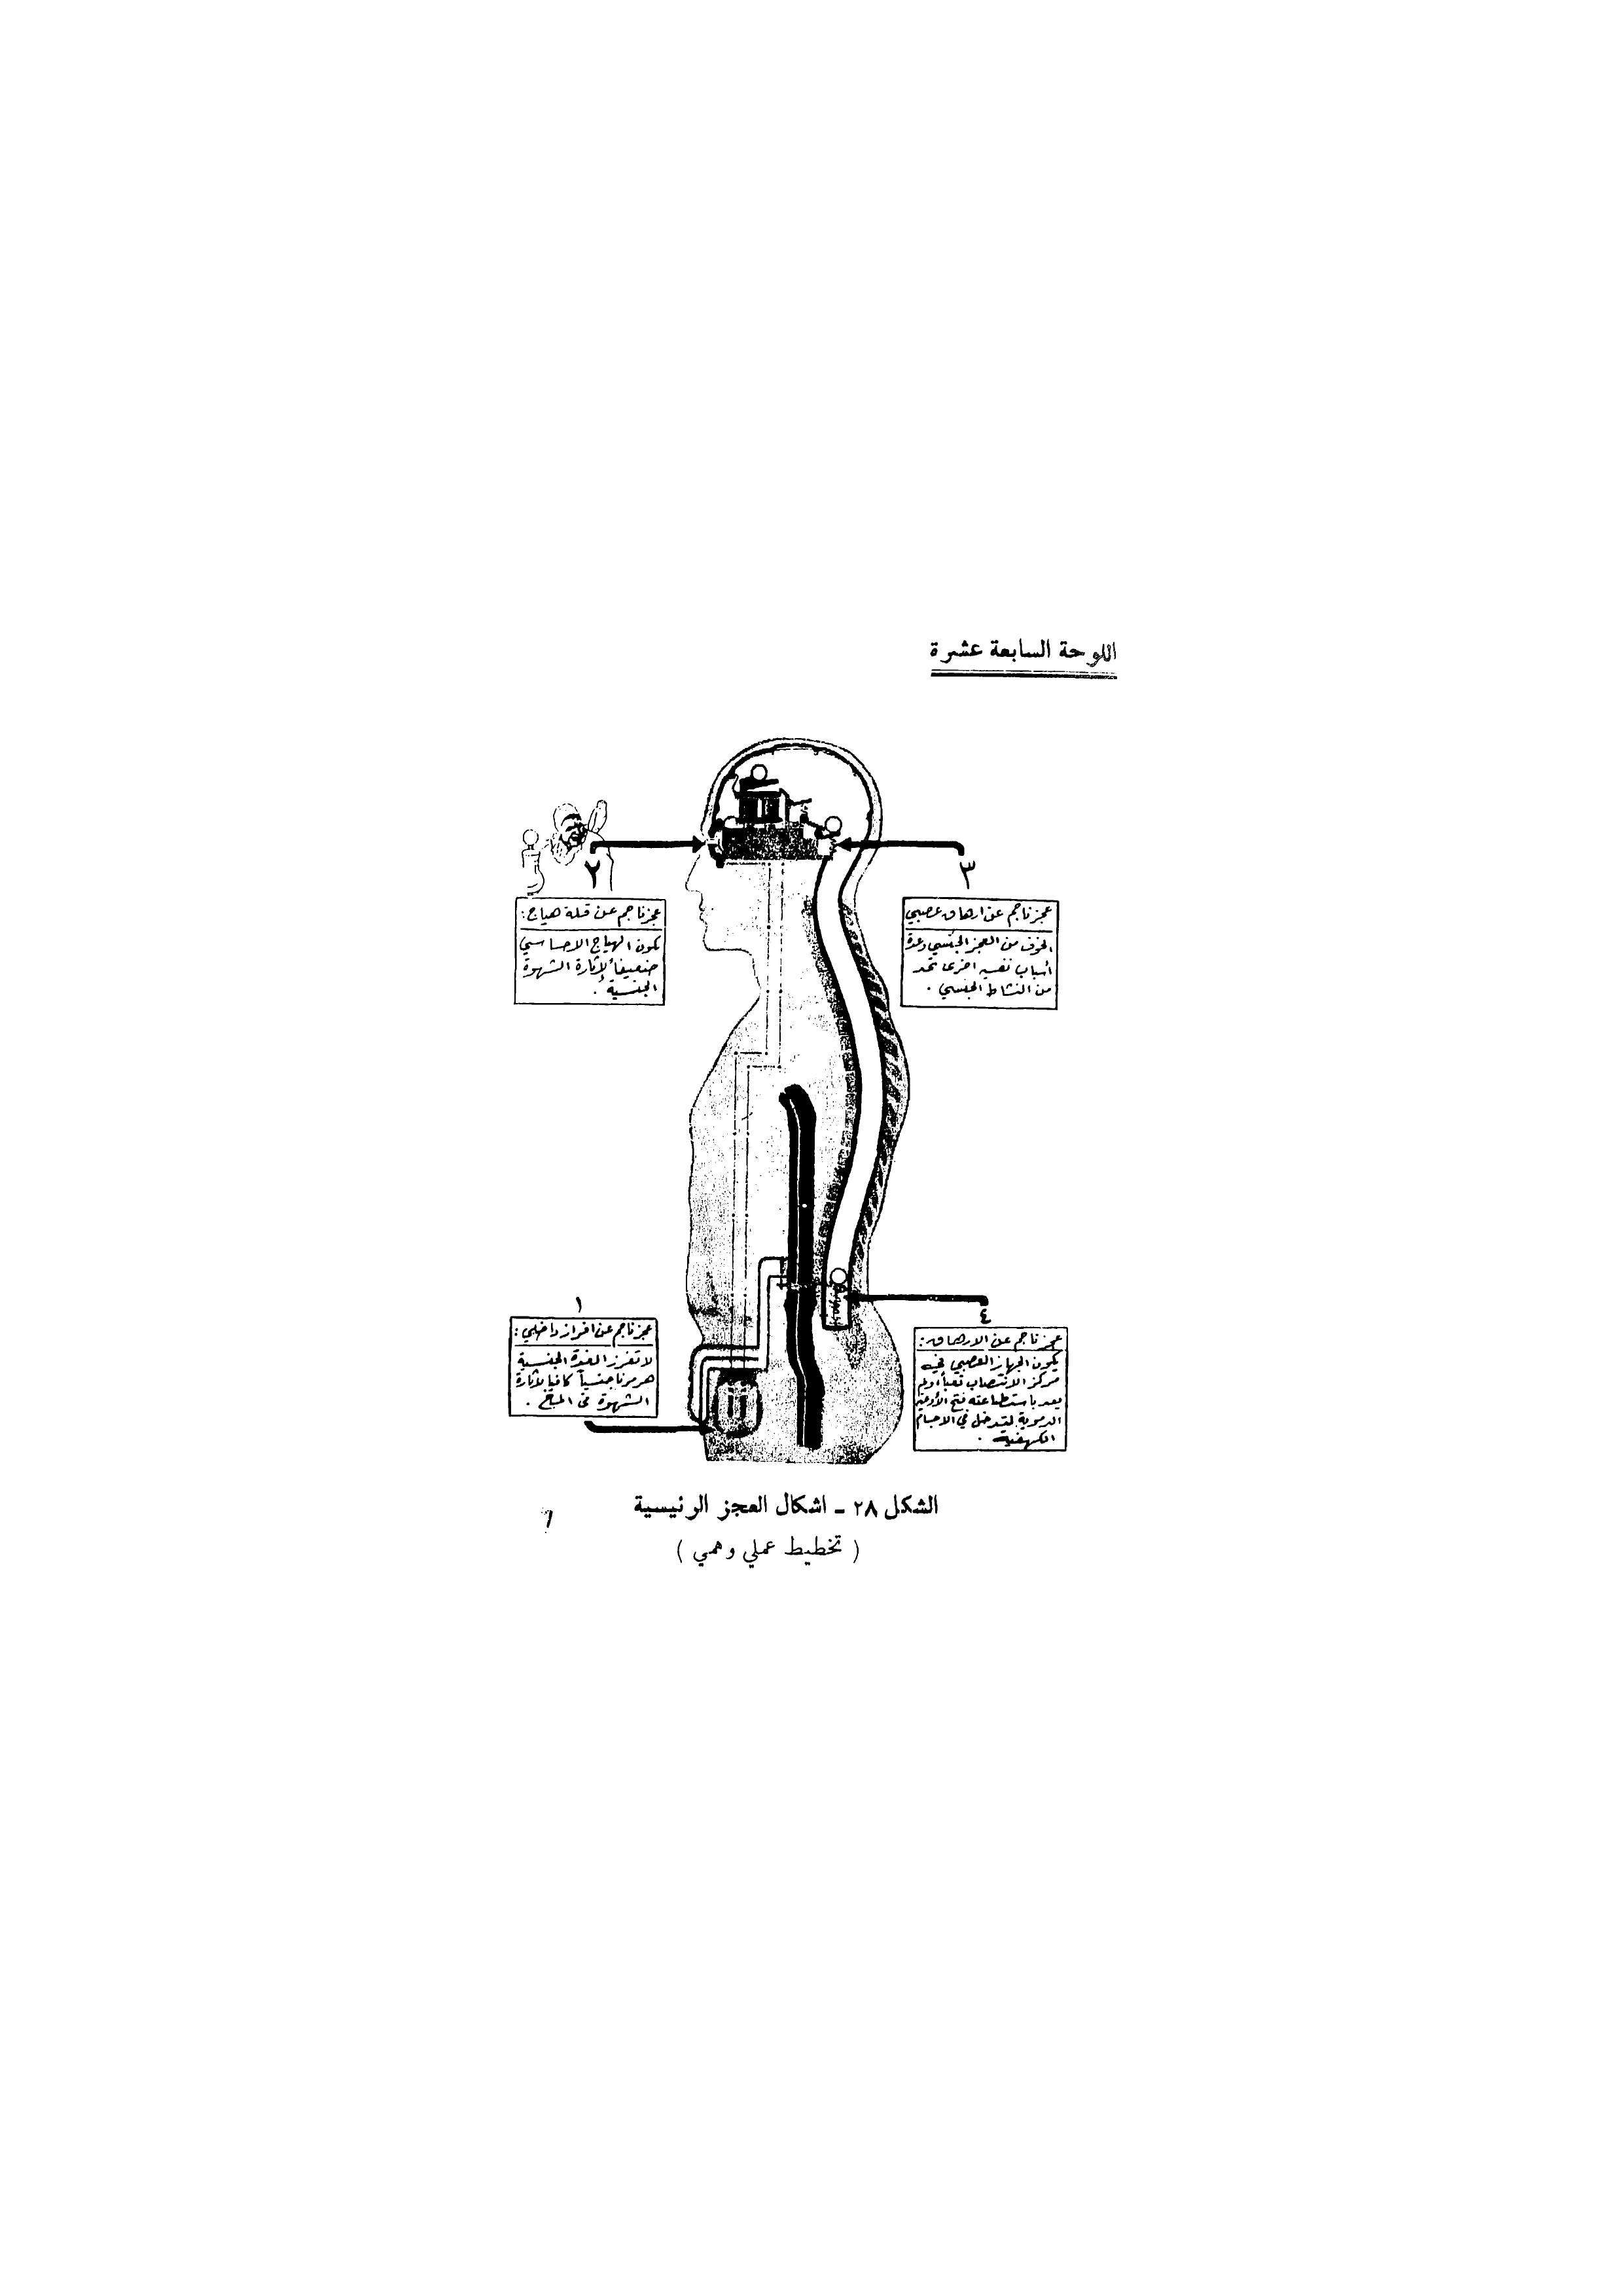 اللوحة السابعة عشرة
٢
عجز ناجم عن قلة هياج :
يكون الهياج الاحساسي
ضعيفاً لإثارة الشهوة
الجنسية .
٣
عجز ناجم عن ارهاق عصبي
الخوف من العجز الجنسي وعدة
أسباب نفسية اخرى تحد
من النشاط الجنسي .
١
عجز ناجم عن افراز داخلي :
لا تفرز الغدة الجنسية
هرمونا جنسياً كافيا لاثارة
الشهوة في المخ .
٤
عجز ناجم عن الارهاق :
يكون الجهاز العصبي في
مركز الانتصاب تعباً ولم
يعد باستطاعته فتح الأوعية
الدموية لتدخل في الاجسام
الكهفية .
الشكل ٢٨ - اشكال العجز الرئيسية
( تخطيط عملي وهمي )